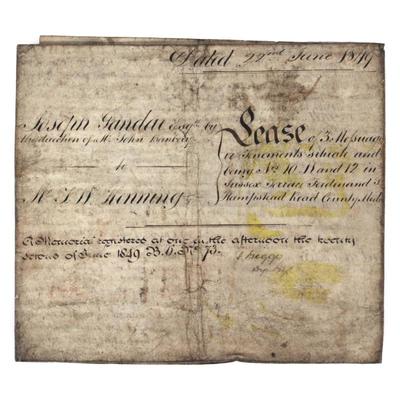 Dated 22nd June 1849
Joseph Gandar Esqre by
the direction of Mr John
to
Mr T W Henning
Lease of 3 Messuages
or Tenements situate and
being Nos 10 11 and 12 in
Sussex Terrace Ferdinand St
Hampstead Road County Middx
A Memorial registered at one in the afternoon the twenty
seven of June 1849 B. 6. No 73.